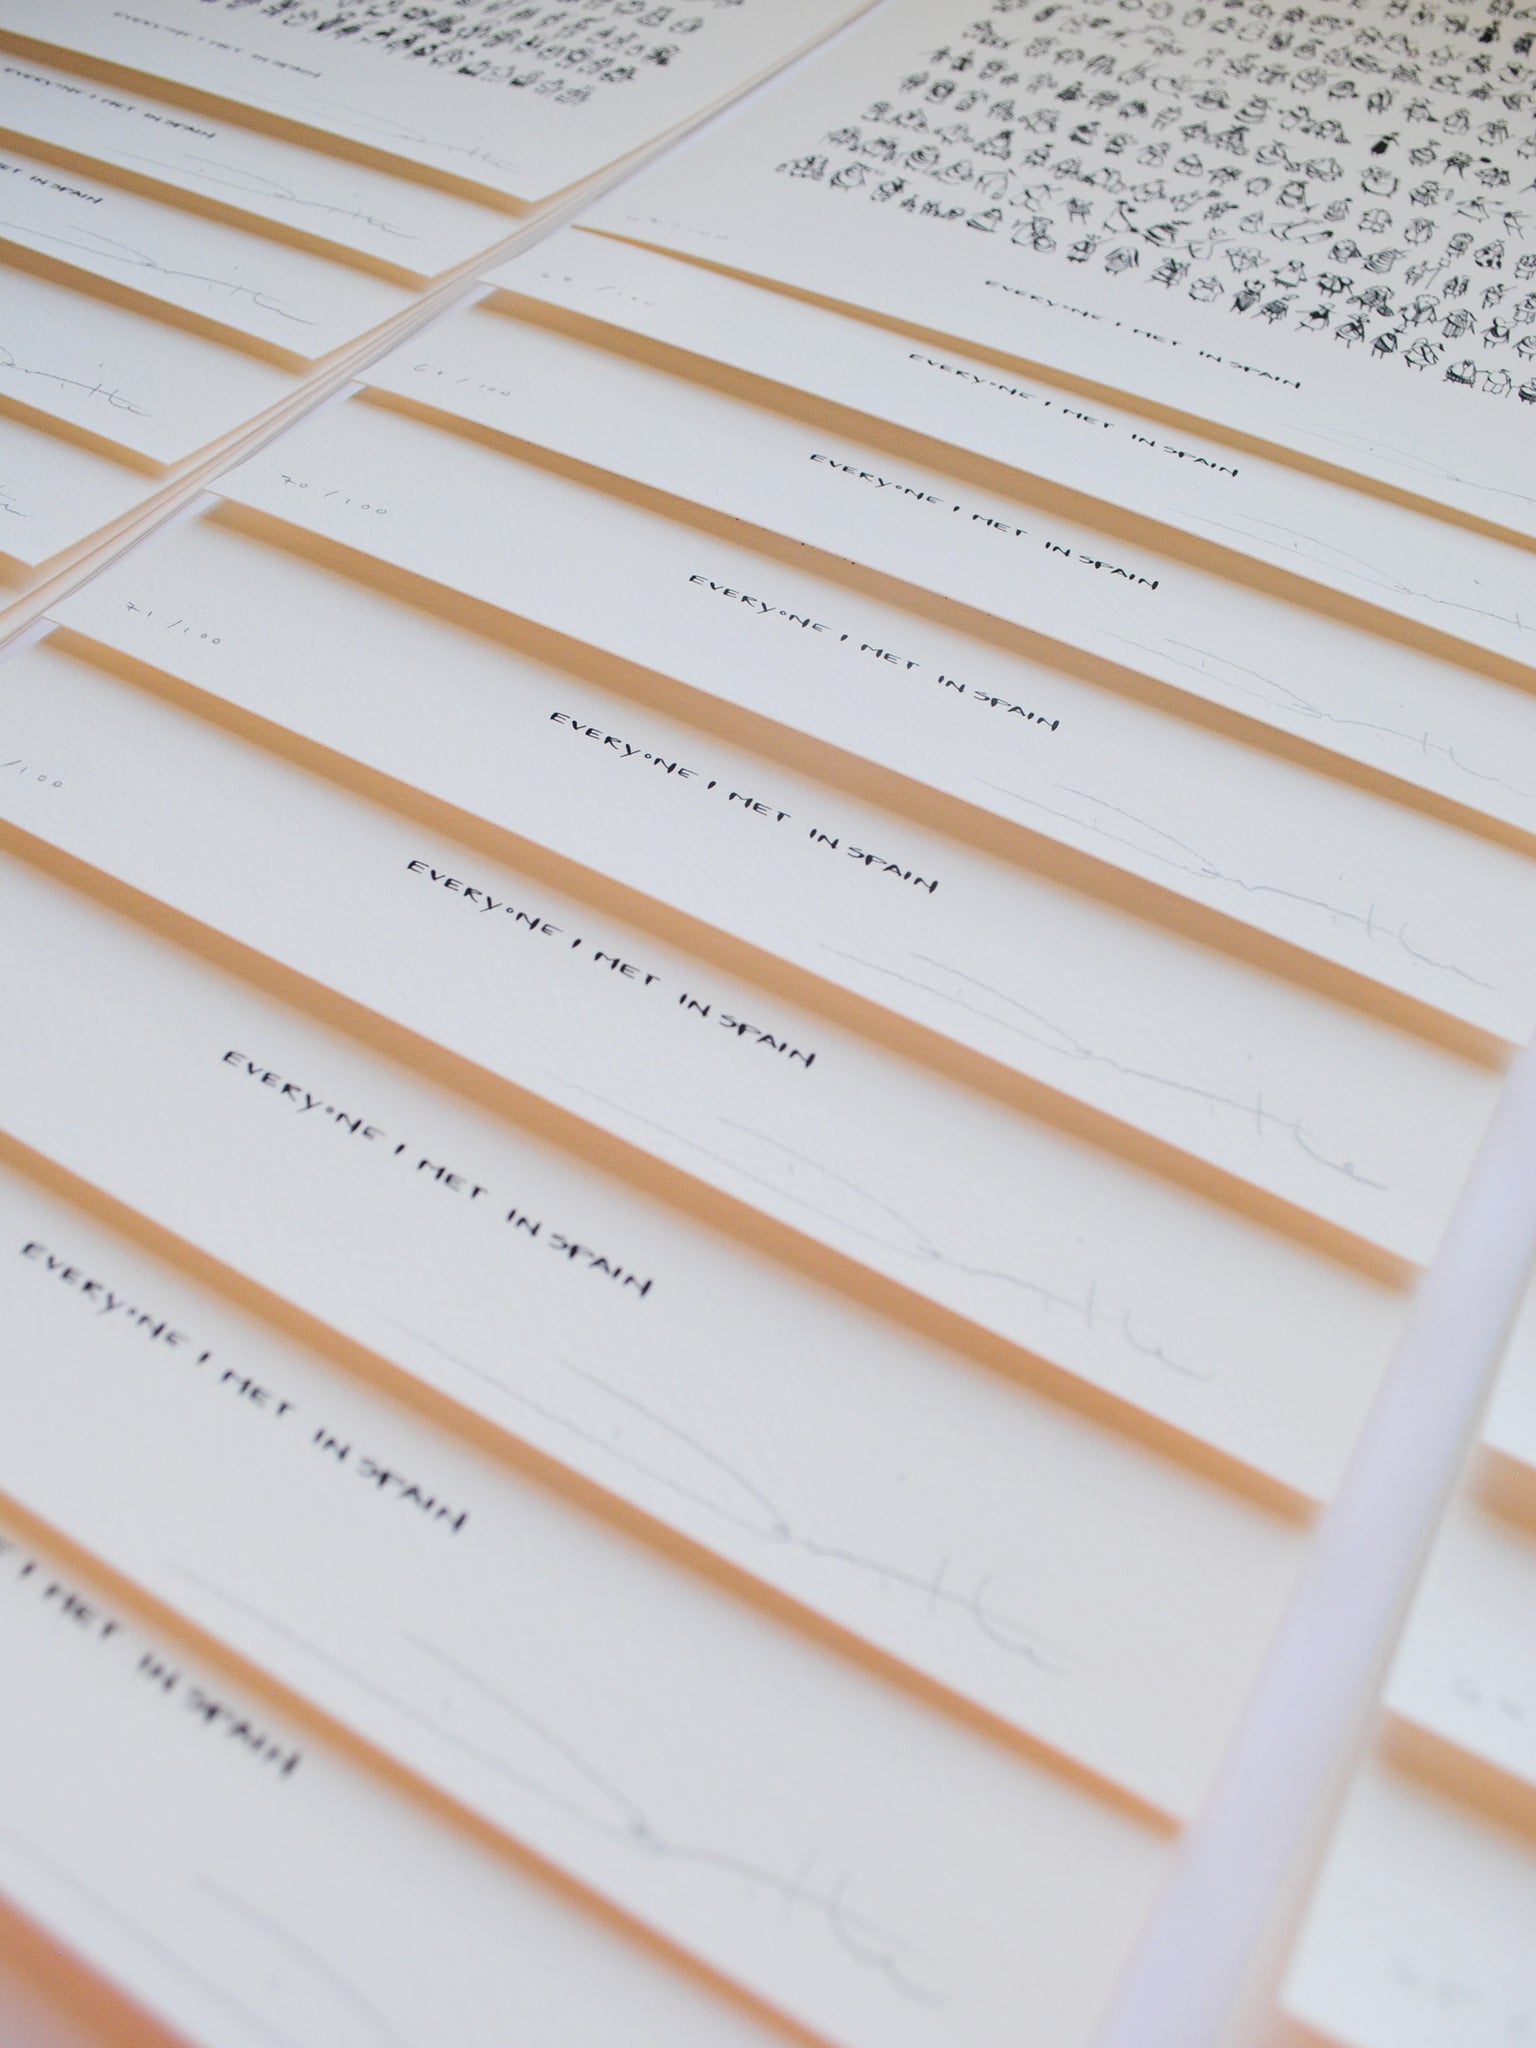 EVERYONE I MET IN SPAIN
EVERYONE I MET IN SPAIN
MET IN SPAIN
67/100
EVERYONE I MET IN SPAIN
68/100
EVERYONE I MET IN SPAIN
69/100
EVERYONE I MET IN SPAIN
70/100
EVERYONE I MET IN SPAIN
71/100
EVERYONE I MET IN SPAIN
/100
EVERYONE I MET IN SPAIN
EVERYONE I MET IN SPAIN
EVERYONE I MET IN SPAIN
I MET IN SPAIN